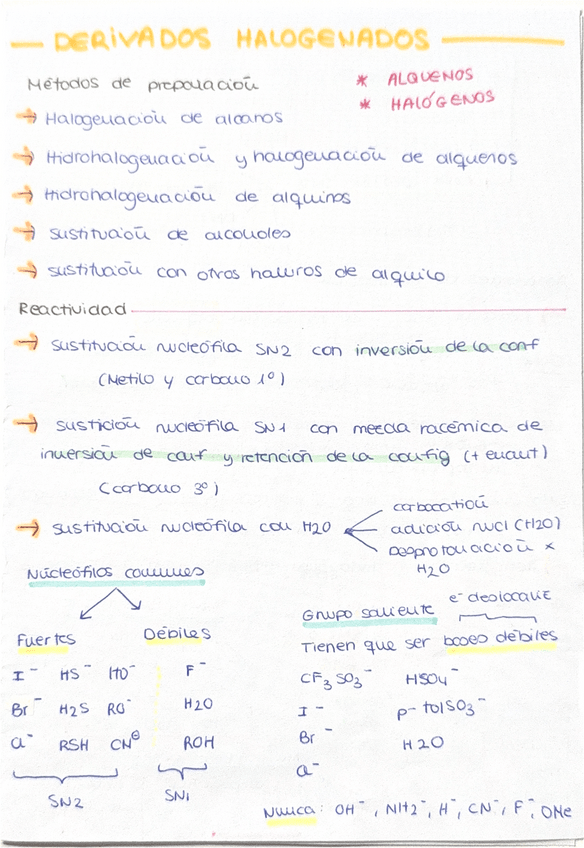 DERIVADOS HALOGENADOS
Métodos de preparación
* ALQUENOS
* HALÓGENOS
→ Halogenación de alcanos
→ Hidrohalogenación y halogenación de alquenos
→ Hidrohalogenación de alquinos
→ sustitución de alcoholes
→ sustitución con otros haluros de alquilo
Reactividad
→ sustitución nucleófila SN2 con inversión de la conf
(Metilo y carbono 1º)
→ sustición nucleófila SN1 con mezcla racémica de
inversión de conf y retención de la config (+ enant)
(carbono 3º)
→ sustitución nucleófila con H2O
carbocatión
adición nucl (H2O)
Desprotonación x
H2O
Nucleófilos comunes
Fuertes
Débiles
I⁻ HS⁻ HO⁻ F⁻
Br⁻ H2S RO⁻ H2O
Cl⁻ RSH CN⊖ ROH
SN2 SN1
Grupo saliente
e⁻ deslocaliz
Tienen que ser bases débiles
CF3SO3⁻ HSO4⁻
I⁻ p-tolSO3⁻
Br⁻ H2O
Cl⁻
Nunca: OH⁻, NH2⁻, H⁻, CN⁻, F⁻, OMe